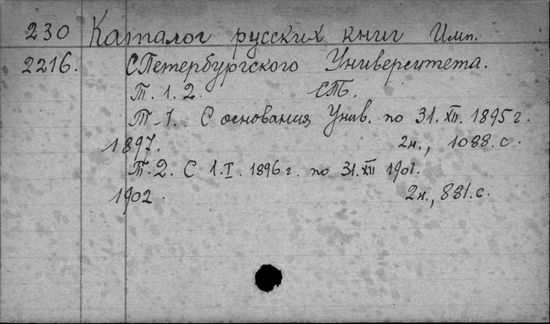 230 Каталог русских книг Имп.
2216. СПетербургского Университета.
Т. 1. 2 СПБ.
Т-1. С основания Унив. по 31. XII. 1895 г.
1897. 2н., 1088. с.
Т. 2. С 1. I. 1896 г. по 31. XII 1901.
1902 2н., 881. с.